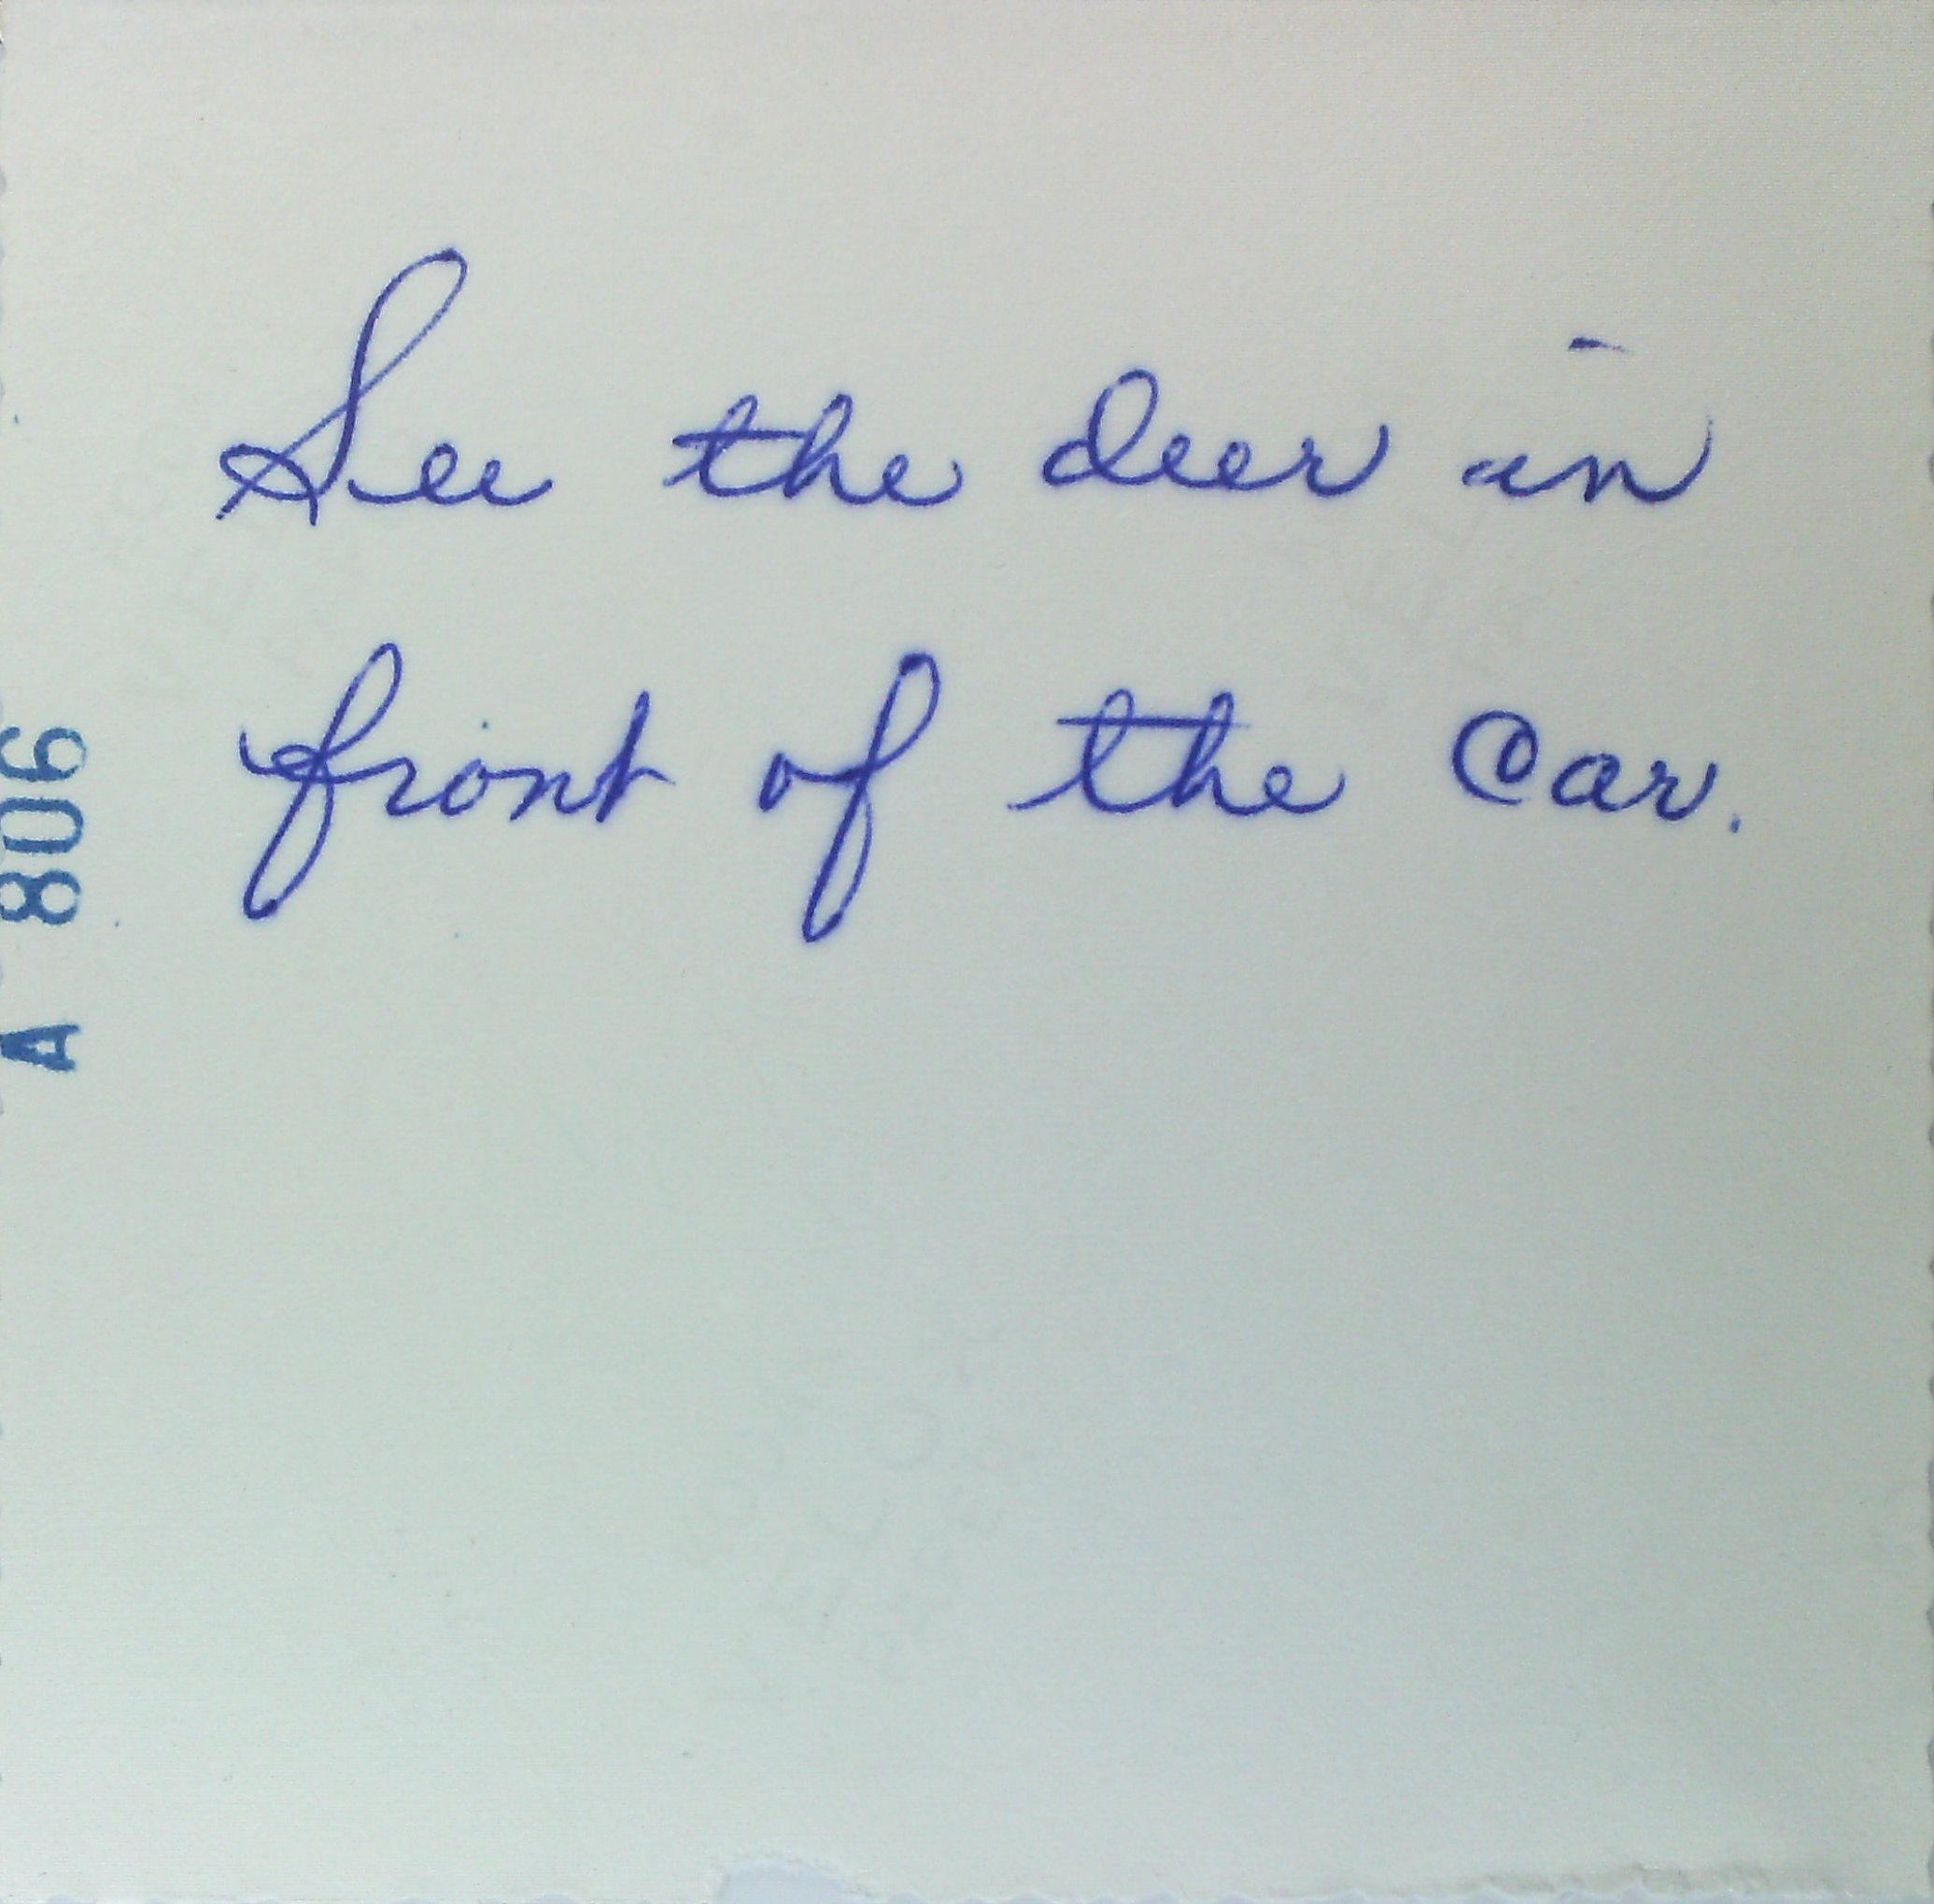 See the deer in
front of the car.
A 806